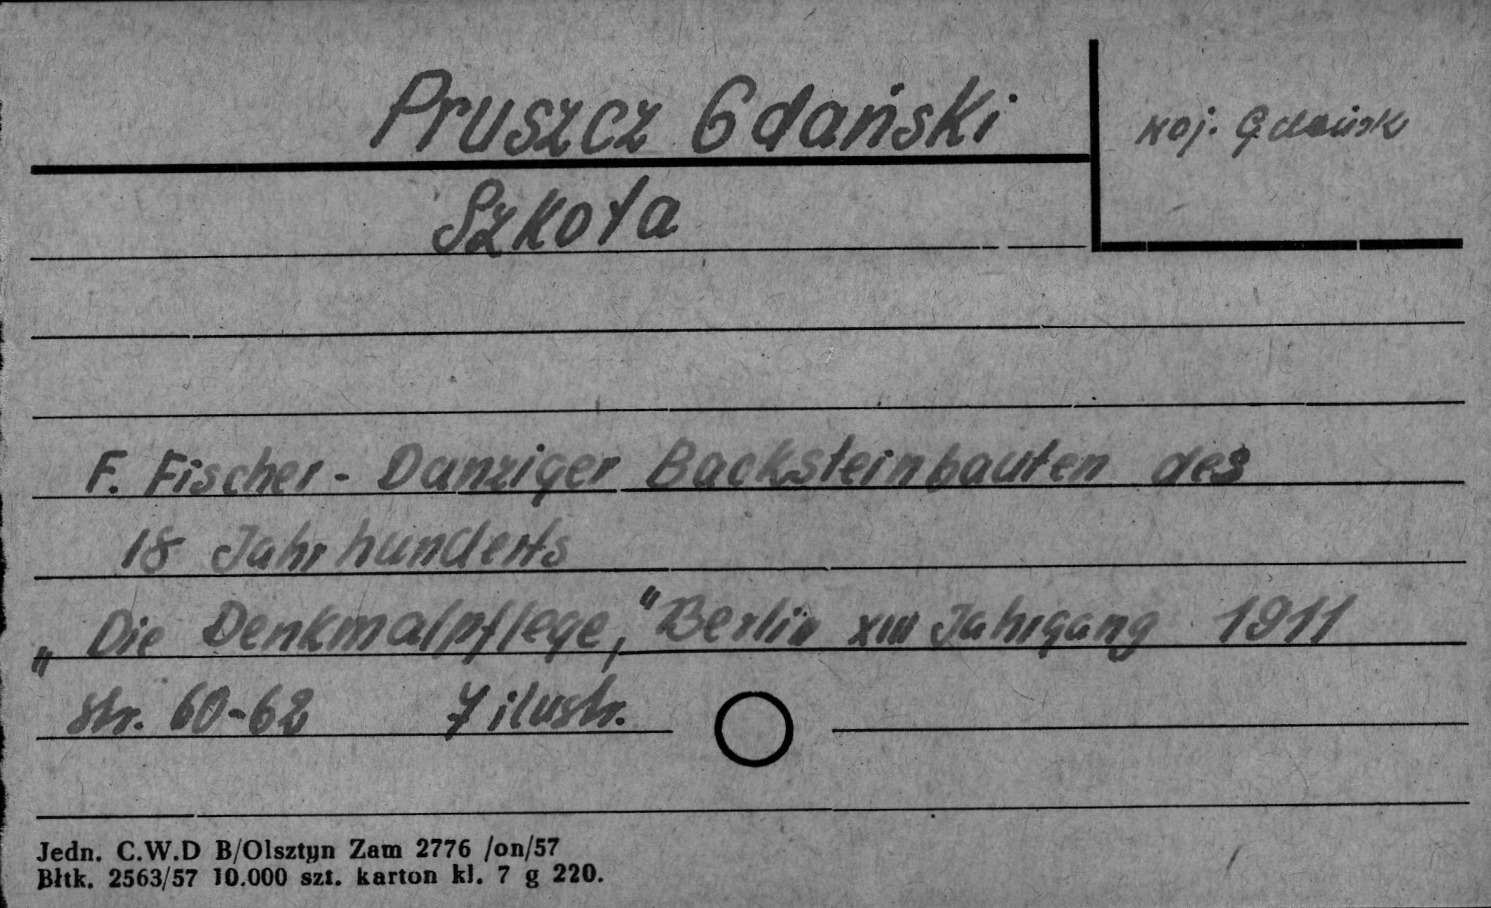 Pruszcz Gdański
woj. Gdańsk
Szkoła
F. Fischer - Danziger Backsteinbauten des
18 Jahrhunderts
„Die Denkmalpflege," Berlin XIII Jahrgang 1911
str. 60-62 7 ilustr.
Jedn. C.W.D B/Olsztyn Zam 2776 /on/57
Błtk. 2563/57 10.000 szt. karton kl. 7 g 220.